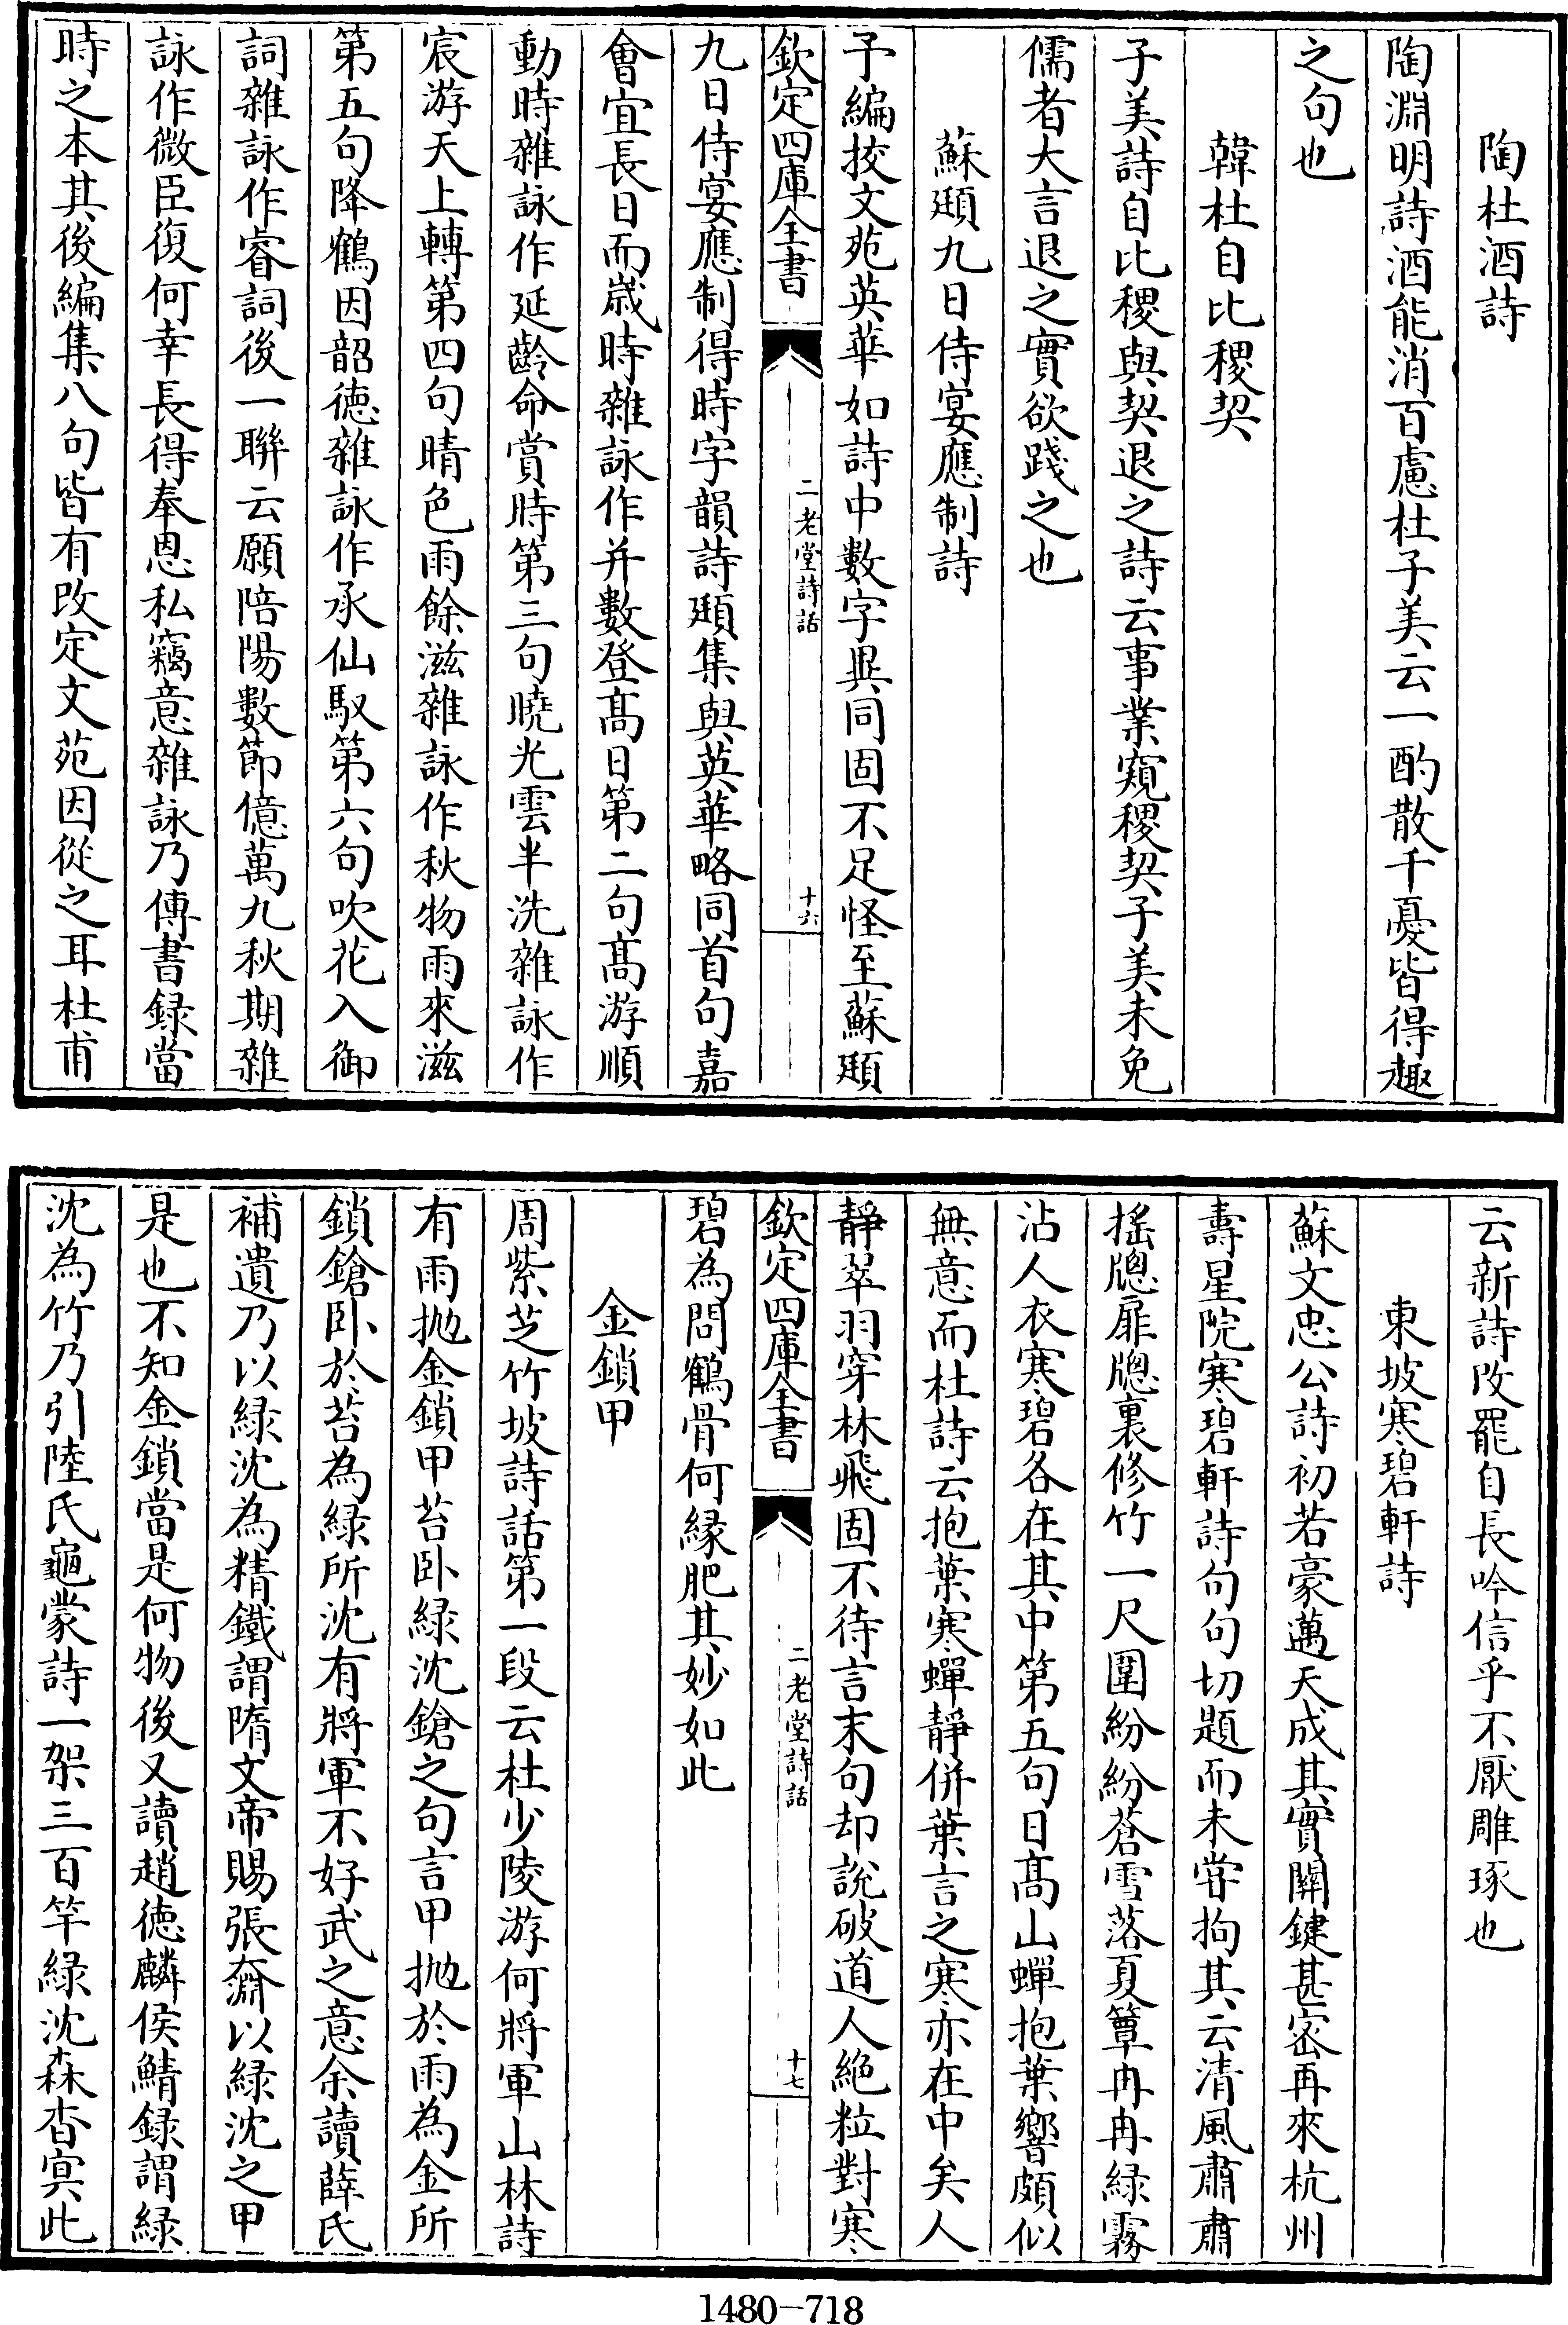 陶杜酒詩
陶淵明詩酒能消百慮杜子美云一酌散千憂皆得趣
之句也
韓杜自比稷契
子美詩自比稷與契退之詩云事業窺稷契子美未免
儒者大言退之實欲踐之也
蘇頲九日侍宴應制詩
子編挍文苑英華如詩中數字異同固不足怪至蘇頲
欽定四庫全書
二老堂詩話
十六
九日侍宴應制得時字韻詩頲集與英華略同首句嘉
會宜長日而歲時雜詠作并數登髙日第二句髙游順
動時雜詠作延齡命賞時第三句曉光雲半洗雜詠作
宸游天上轉第四句晴色雨餘滋雜詠作秋物雨來滋
第五句降鶴因韶徳雜詠作承仙馭第六句吹花入御
詞雜詠作睿詞後一聯云願陪陽數節億萬九秋期雜
詠作微臣復何幸長得奉恩私竊意雜詠乃傳書録當
時之本其後編集八句皆有改定文苑因從之耳杜甫
云新詩改罷自長吟信乎不厭雕琢也
東坡寒碧軒詩
蘇文忠公詩初若豪邁天成其實關鍵甚密再來杭州
壽星院寒碧軒詩句句切題而未嘗拘其云清風肅肅
搖牕扉牕裏修竹一尺圍紛紛蒼雪落夏簟冉冉緑霧
沾人衣寒碧各在其中第五句日髙山蟬抱葉響頗似
無意而杜詩云抱葉寒蟬靜併葉言之寒亦在中矣人
靜翠羽穿林飛固不待言末句却說破道人絶粒對寒
欽定四庫全書
二老堂詩話
十七
碧為問鶴骨何緣肥其妙如此
金鎖甲
周紫芝竹坡詩話第一段云杜少陵游何將軍山林詩
有雨抛金鎖甲苔卧緑沈鎗之句言甲抛於雨為金所
鎖鎗卧於苔為緑所沈有將軍不好武之意余讀薛氏
補遺乃以緑沈為精鐵謂隋文帝賜張奫以緑沈之甲
是也不知金鎖當是何物後又讀趙徳麟侯鯖録謂緑
沈為竹乃引陸氏龜蒙詩一架三百竿緑沈森杳㝠此
1480-718